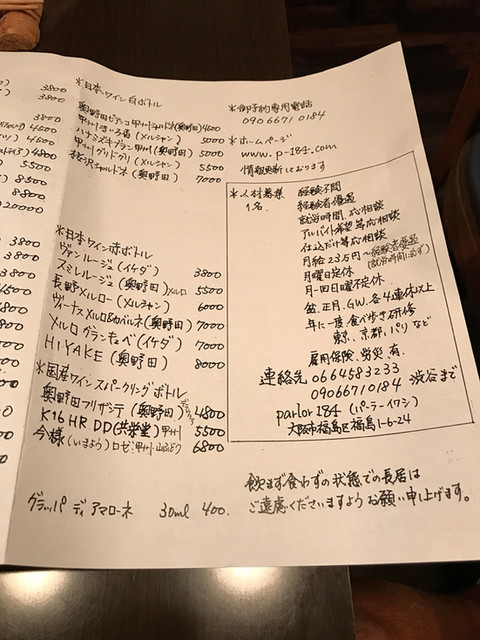 3800
3800
4500
4600
4800
5500
8500
20000
3800
*日本ワイン白ボトル
奥野田ビアンコ甲州シャルドネ(奥野田) 4600
甲州きいろ香 (メルシャン) 5000
ハナミズキブラン甲州(奥野田) 5000
甲州グリドグリ(メルシャン) 5500
桜沢シャルドネ(奥野田) 7000
*日本ワイン赤ボトル
ヴァンルージュ(イケダ) 3800
スミレルージュ(奥野田)メルロ 5500
長野メルロー(メルシャン) 6000
ヴィーナスメルロ&カベルネ(奥野田) 7000
メルロ グランキュベ(イケダ) 7000
HIYAKE (奥野田) 8000
*国産ワインスパークリングボトル
奥野田フリザンテ (奥野田) 4800
K16 HR DD(共栄堂)甲州 5500
今様(いまよう)ロゼ 甲州 山ぶどう 6800
グラッパ ディ アマローネ 30ml 400.
*御予約専用電話
09066710184
*ホームページ
www.p-184.com
情報更新しております
*人材募集 経験不問
1名. 経験者優遇
就労時間、応相談
アルバイト希望等応相談
仕込だけ等応相談
月給23万円〜経験者優遇
(就労時間に応ず)
月曜日定休
月一回日曜不定休
盆、正月、GW、各4連休以上
年に一度食べ歩き研修
東京、京都、パリなど
雇用保険、労災、有.
連絡先 0664583233
09066710184 渋谷まで
parlor184 (パーラーイワシ)
大阪市福島区福島1-6-24
飲まず食わずの状態での長居は
ご遠慮くださいますようお願い申し上げます。